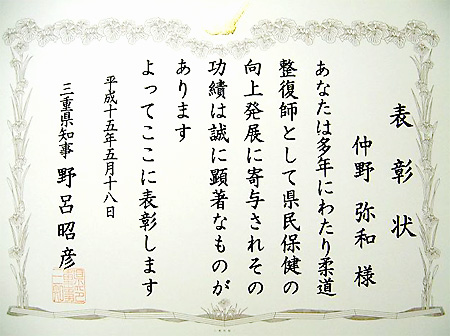 表彰状
仲野 弥和 様
あなたは多年にわたり柔道
整復師として県民保健の
向上発展に寄与されその
功績は誠に顕著なものが
あります
よってここに表彰します
平成十五年五月十八日
三重県知事 野呂昭彦